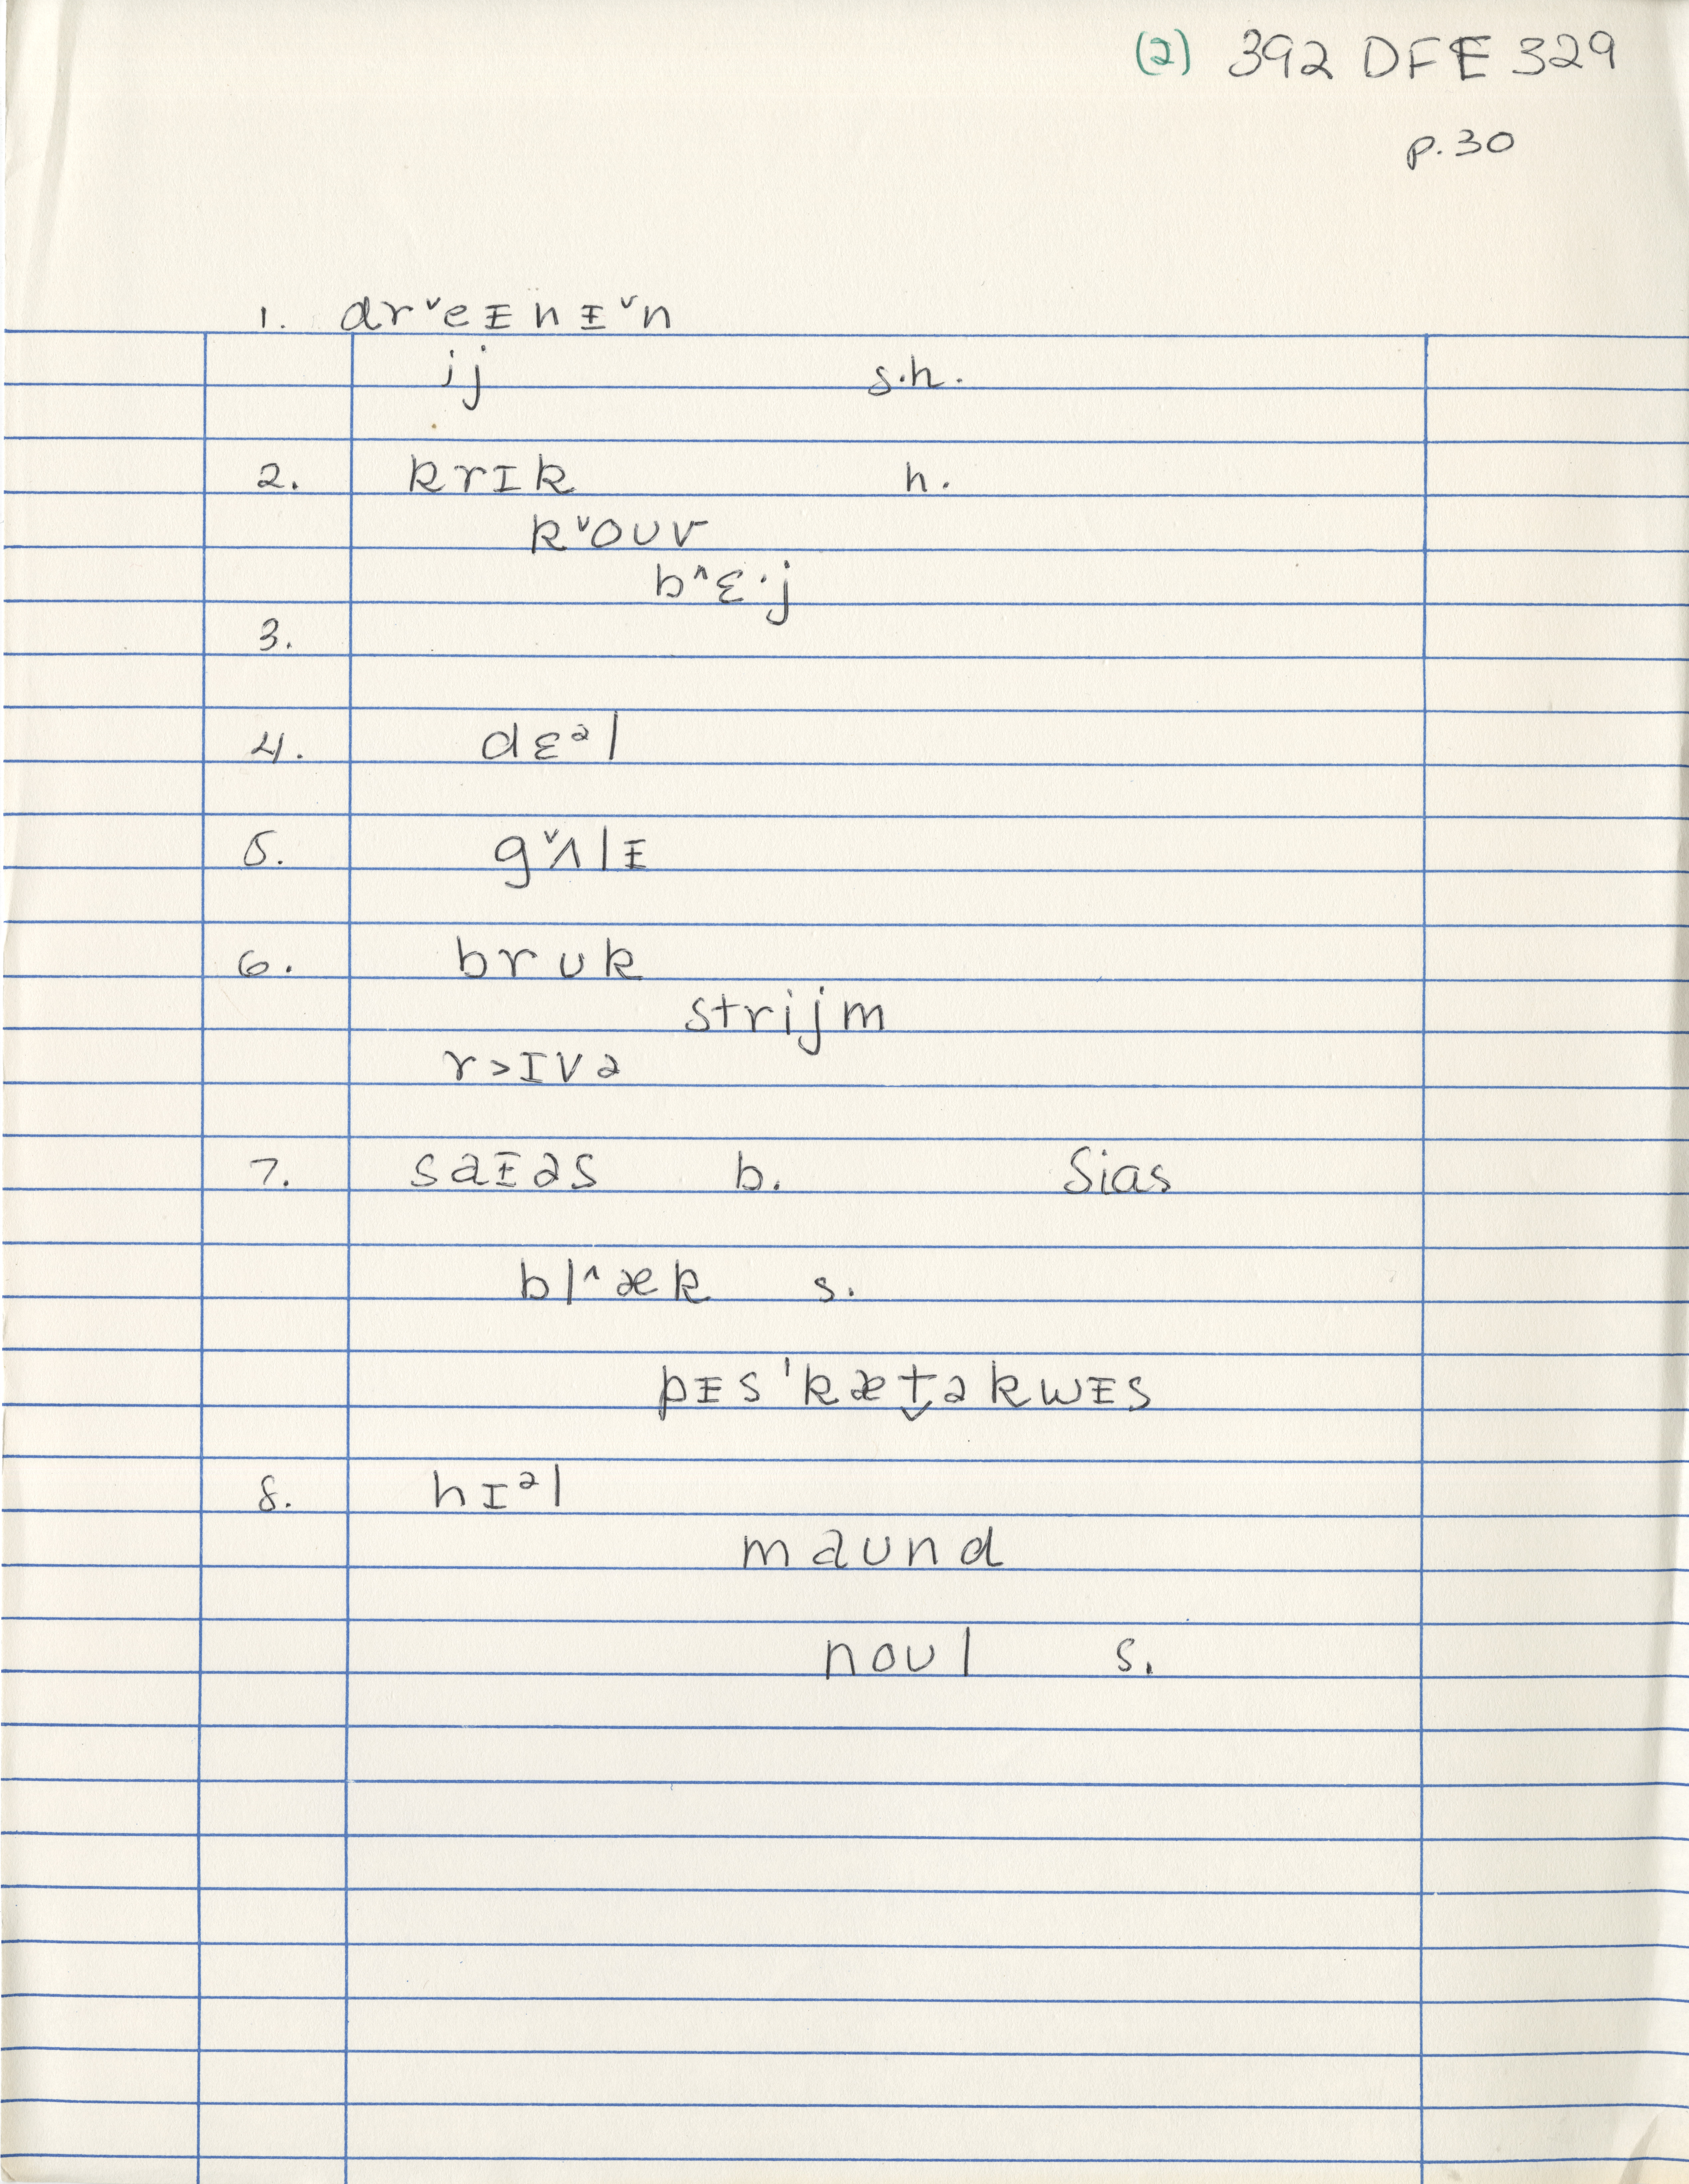 (2) 392 DFE 329
p. 30
1. drˇeᵻnᵻˇn
ij s.h.
2. krɪk h.
kˇoᴜv
b^ɛ·j
3.
4. dɛᵊl
5. gˇʌlᵻ
6. brᴜk
strijm
r>ɪvə
7. saᵻəs b. Sias
bl^æk s.
pᵻs'kæt̬əkwᵻs
8. hɪᵊl
maᴜnd
noᴜl s.